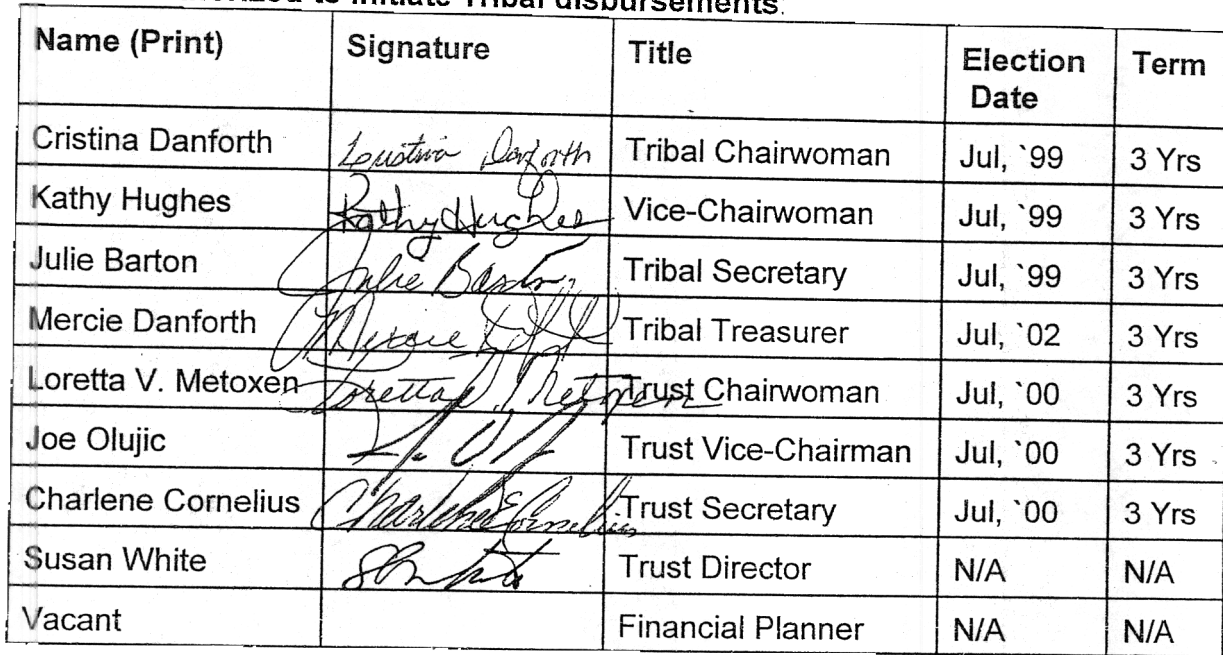 to initiate Tribal disbursements.
Name (Print) Signature Title Election Date Term
Cristina Danforth Cristina Danforth Tribal Chairwoman Jul, `99 3 Yrs
Kathy Hughes Kathy Hughes Vice-Chairwoman Jul, `99 3 Yrs
Julie Barton Julie Barton Tribal Secretary Jul, `99 3 Yrs
Mercie Danforth Mercie Tribal Treasurer Jul, `02 3 Yrs
Loretta V. Metoxen Loretta V. Metoxen Trust Chairwoman Jul, `00 3 Yrs
Joe Olujic Trust Vice-Chairman Jul, `00 3 Yrs
Charlene Cornelius Charlene Cornelius Trust Secretary Jul, `00 3 Yrs
Susan White Trust Director N/A N/A
Vacant Financial Planner N/A N/A